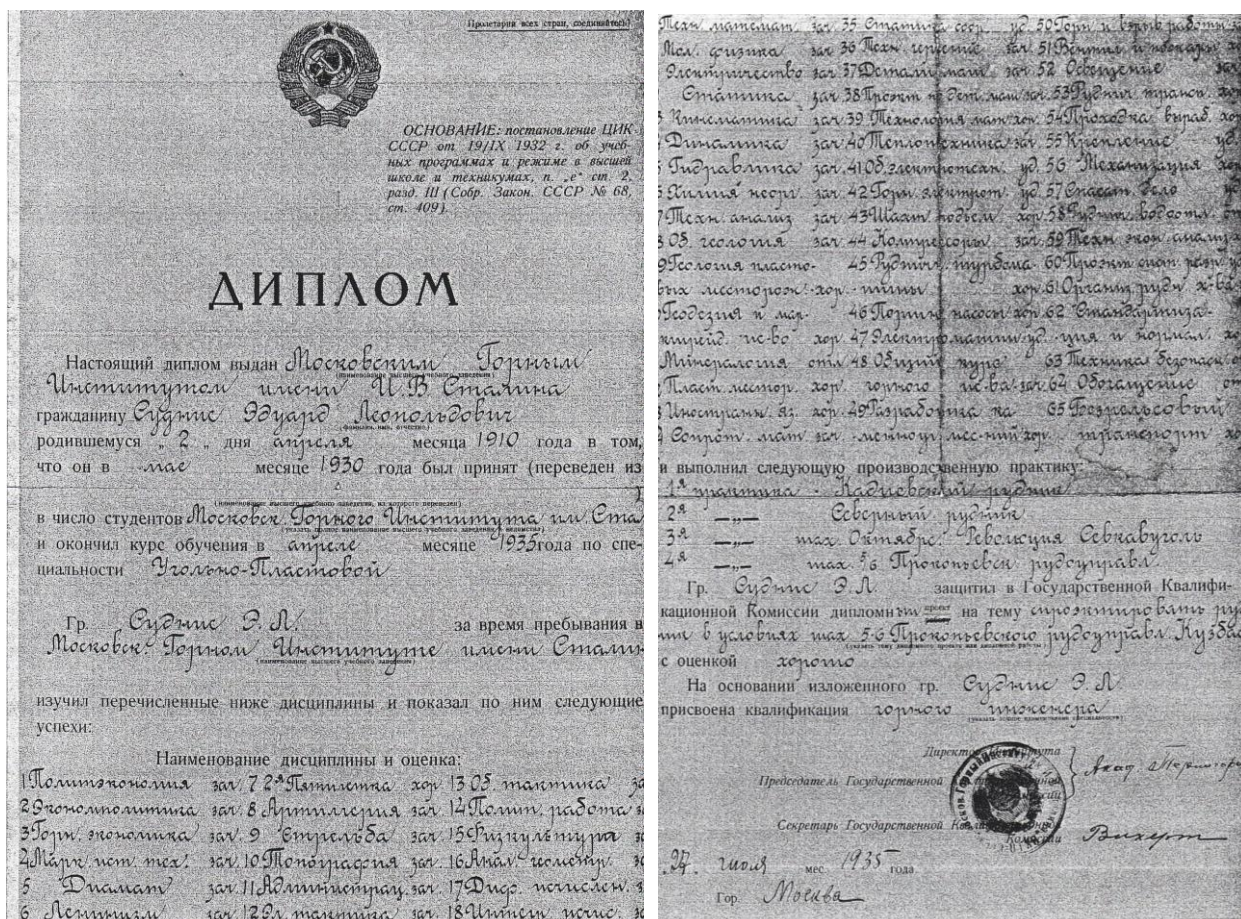 Пролетарии всех стран, соединяйтесь!
ОСНОВАНИЕ: постановление ЦИК
СССР от 19/IX 1932 г. об учеб-
ных программах и режиме в высшей
школе и техникумах, п. „е“ ст. 2,
разд. III (Собр. Закон. СССР № 68,
ст. 409).
ДИПЛОМ
Настоящий диплом выдан Московским Горным
(наименование высшего учебного заведения)
Институтом имени И.В Сталина
гражданину Суднис Эдуард Леопольдович
(фамилия, имя, отчество)
родившемуся „2„ дня апреля месяца 1910 года в том,
что он в мае месяце 1930 года был принят (переведен из
(наименование высшего учебного заведения, из которого переведен)
в число студентов Московск. Горного Института им. Ста
и окончил курс обучения в апреле месяце 1935 года по спе-
циальности Угольно-Пластовой
Гр. Суднис Э.Л. за время пребывания в
Московск. Горном Институте имени Сталин
(наименование высшего учебного заведения)
изучил перечисленные ниже дисциплины и показал по ним следующие
успехи:
Наименование дисциплины и оценка:
1 Политэкономия зач. 7 2я Пятилетка хор 13 Об. тактика за
2 Экономполитика зач. 8 Артиллерия зач 14 Полит. работа
3 Горн. экономика зач. 9 Стрельба зач 15 Физкультура за
4 Марк. ист. тех. зач. 10 Топография зач. 16 Анал. геометр. за
5 Диамат зач. 11 Администрац. зач. 17 Диф. исчислен. з
6 Ленинизм зач. 12 Эл. тактика зач. 18 Интегр исчис. за
Техн математ зач. 35 Статика соор. уд. 50 Горн и взрыв работы
Мол. физика зач 36 Техн. черчение зач. 51 Вентил. и пожары
Электричество зач 37 Детали маш. зач. 52 Освещение зач
Статика зач. 38 Проэкт по дет. маш зач. 53 Руднич трансп. хор
Кинематика зач. 39 Технология маш хор. 54 Проходка выраб. хор
Динамика зач. 40 Теплотехника зач. 55 Крепление уд.
Гидравлика зач. 41 Об. электротехн. уд. 56 Механизация хор
Химия неорг зач. 42 Горн. электрот. уд. 57 Спасат. дело уд
Техн. анализ зач 43 Шахт. подъем. хор. 58 Руднич водоотл. от
Об. геология зач. 44 Компрессоры зач. 59 Техн. экон. анализ х
Геология пласто- 45 Руднич. турбома- 60 Проэкт сист. разр. уд
вых месторож. хор. шины хор 61 Организ. рудн. х-ва
Геодезия и мар- 46 Поршн насосы хор 62 Стандартиза-
кшейд. ис-во хор 47 Электр. машин. уд. ция и нормал. хо
Минералогия отл 48 Общий курс 63 Техника безопасн
Пласт. местор. хор. горного ис-ва зач. 64 Обогащение от
Иностранн. яз. хор. 49 Разработка ка 65 Безрельсовый
Сопрот. мат зач. менноуг. мес-ний хор. транспорт хо
и выполнил следующую производственную практику:
1я практика - Кадиевский рудник
2я —„— Северный рудник
3я —„— шах. Октябрс. Революция Севкавуголь
4я —„— шах. 5/6 Прокопьевск. рудоуправл.
Гр. Суднис Э.Л. защитил в Государственной Квалифи-
кационной Комиссии дипломным проект на тему спроэктировать руд
ник в условиях шах 5-6 Прокопьевского рудоуправл. Кузбас
(указать тему дипломного проекта или дипломной работы)
с оценкой хорошо
На основании изложенного гр. Суднис Э.Л.
присвоена квалификация горного инженера
Директор Института
Председатель Государственной
Секретарь Государственной
27. июля мес. 1935 года
Гор. Москва